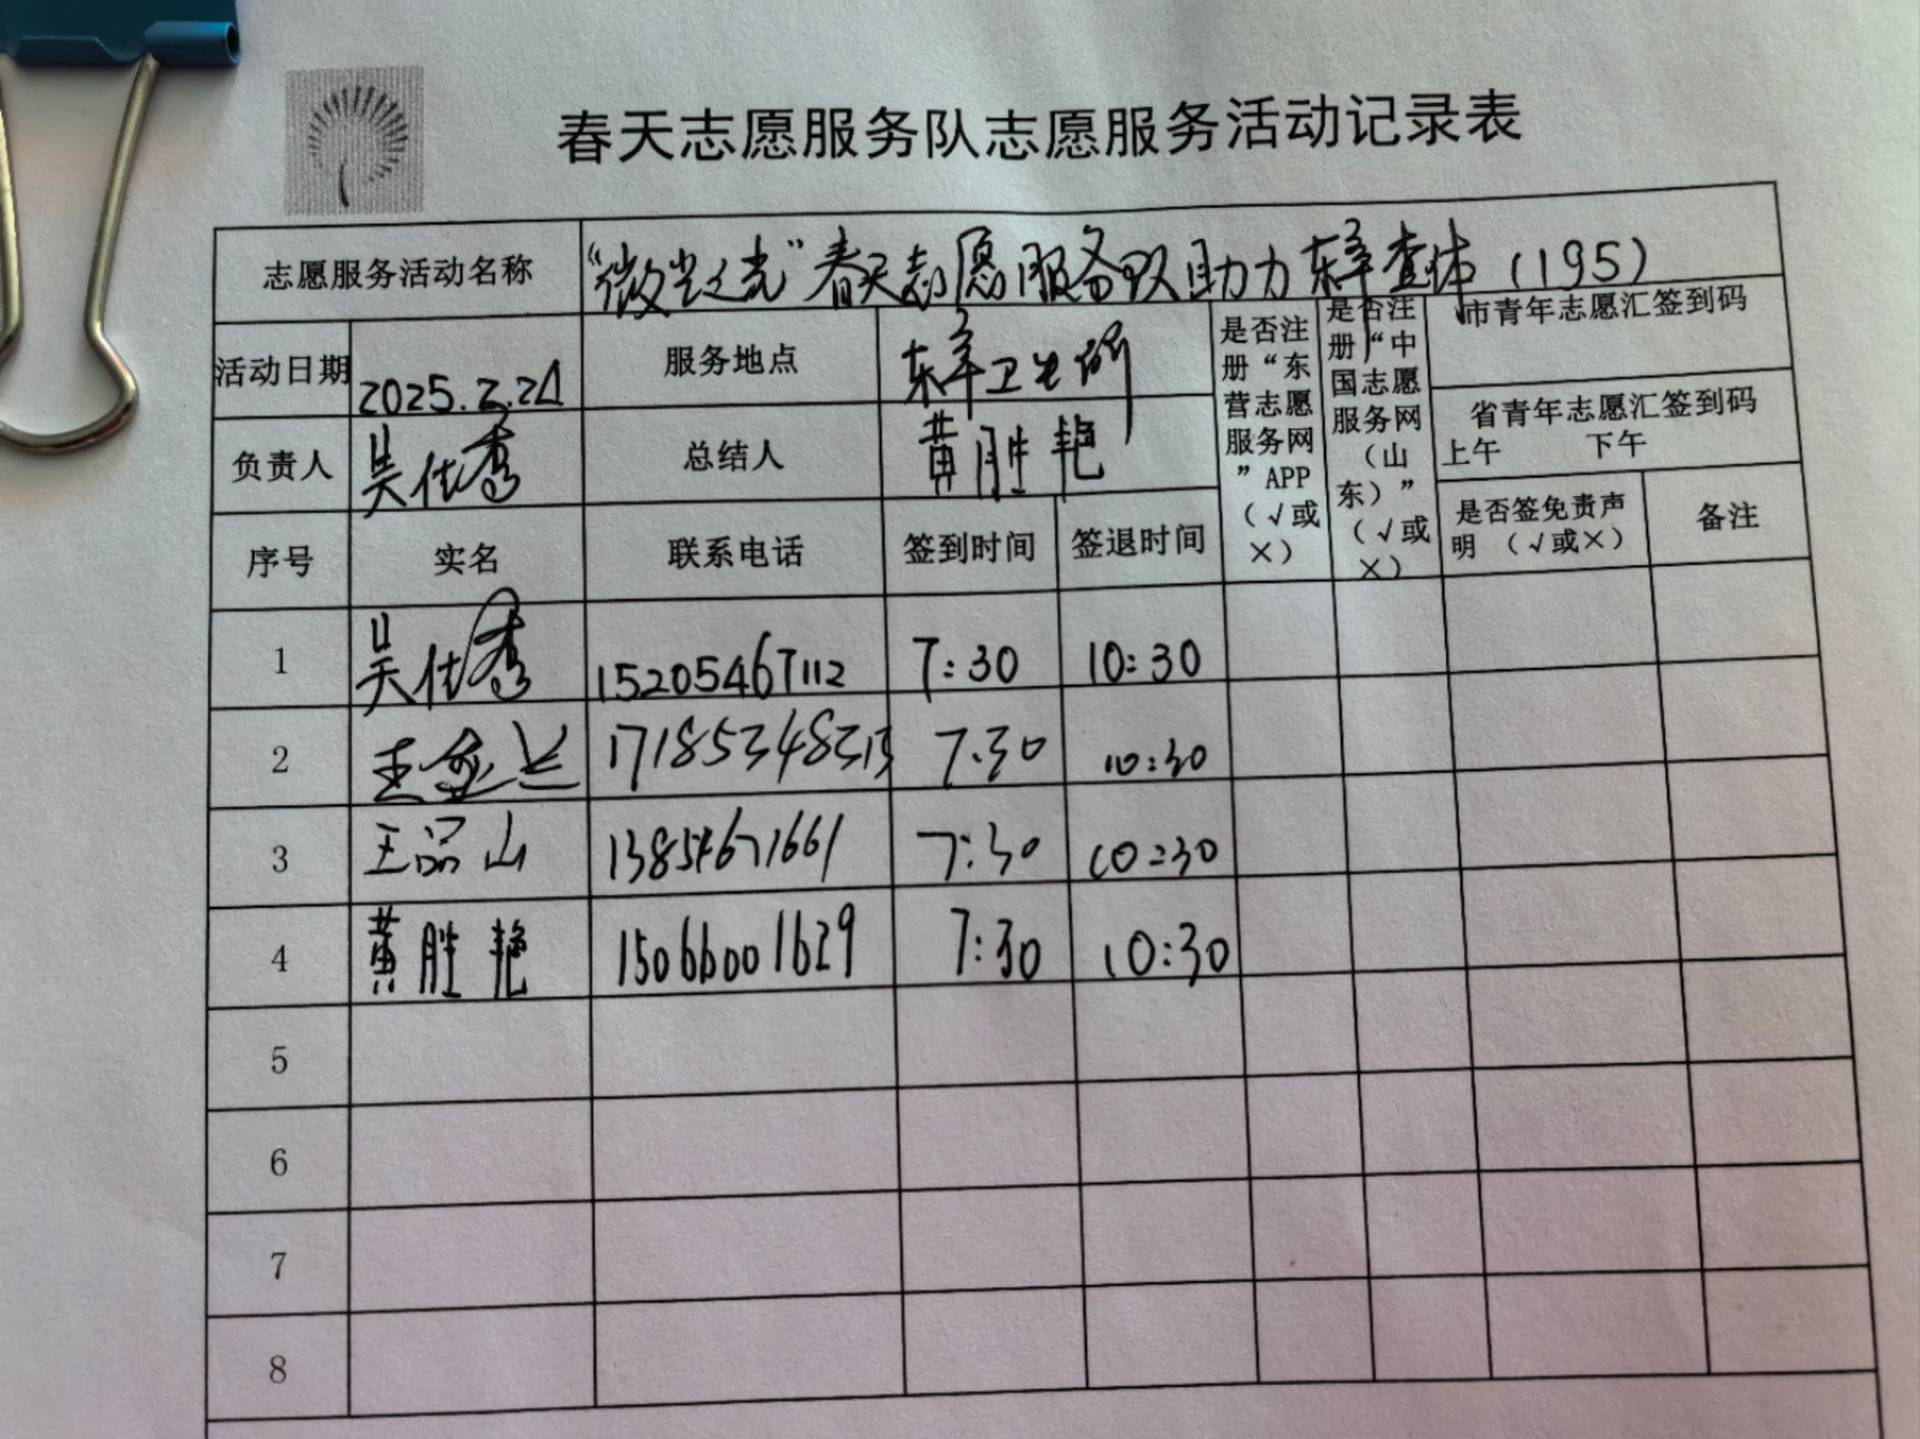 春天志愿服务队志愿服务活动记录表
志愿服务活动名称 “微尘之光”春天志愿服务队助力东辛查体（195）
活动日期 2025.2.21 服务地点 东辛卫生所
是否注册“东营志愿服务网”APP（√或×）
是否注册“中国志愿服务网（山东）”（√或×）
市青年志愿汇签到码
省青年志愿汇签到码
上午 下午
负责人 吴仕秀 总结人 黄胜艳
是否签免责声明 （√或×） 备注
序号 实名 联系电话 签到时间 签退时间
1 吴仕秀 15205467112 7:30 10:30
2 7.30 10:30
3 王品山 13854671661 7:30 10:30
4 黄胜艳 15066001629 7:30 10:30
5
6
7
8